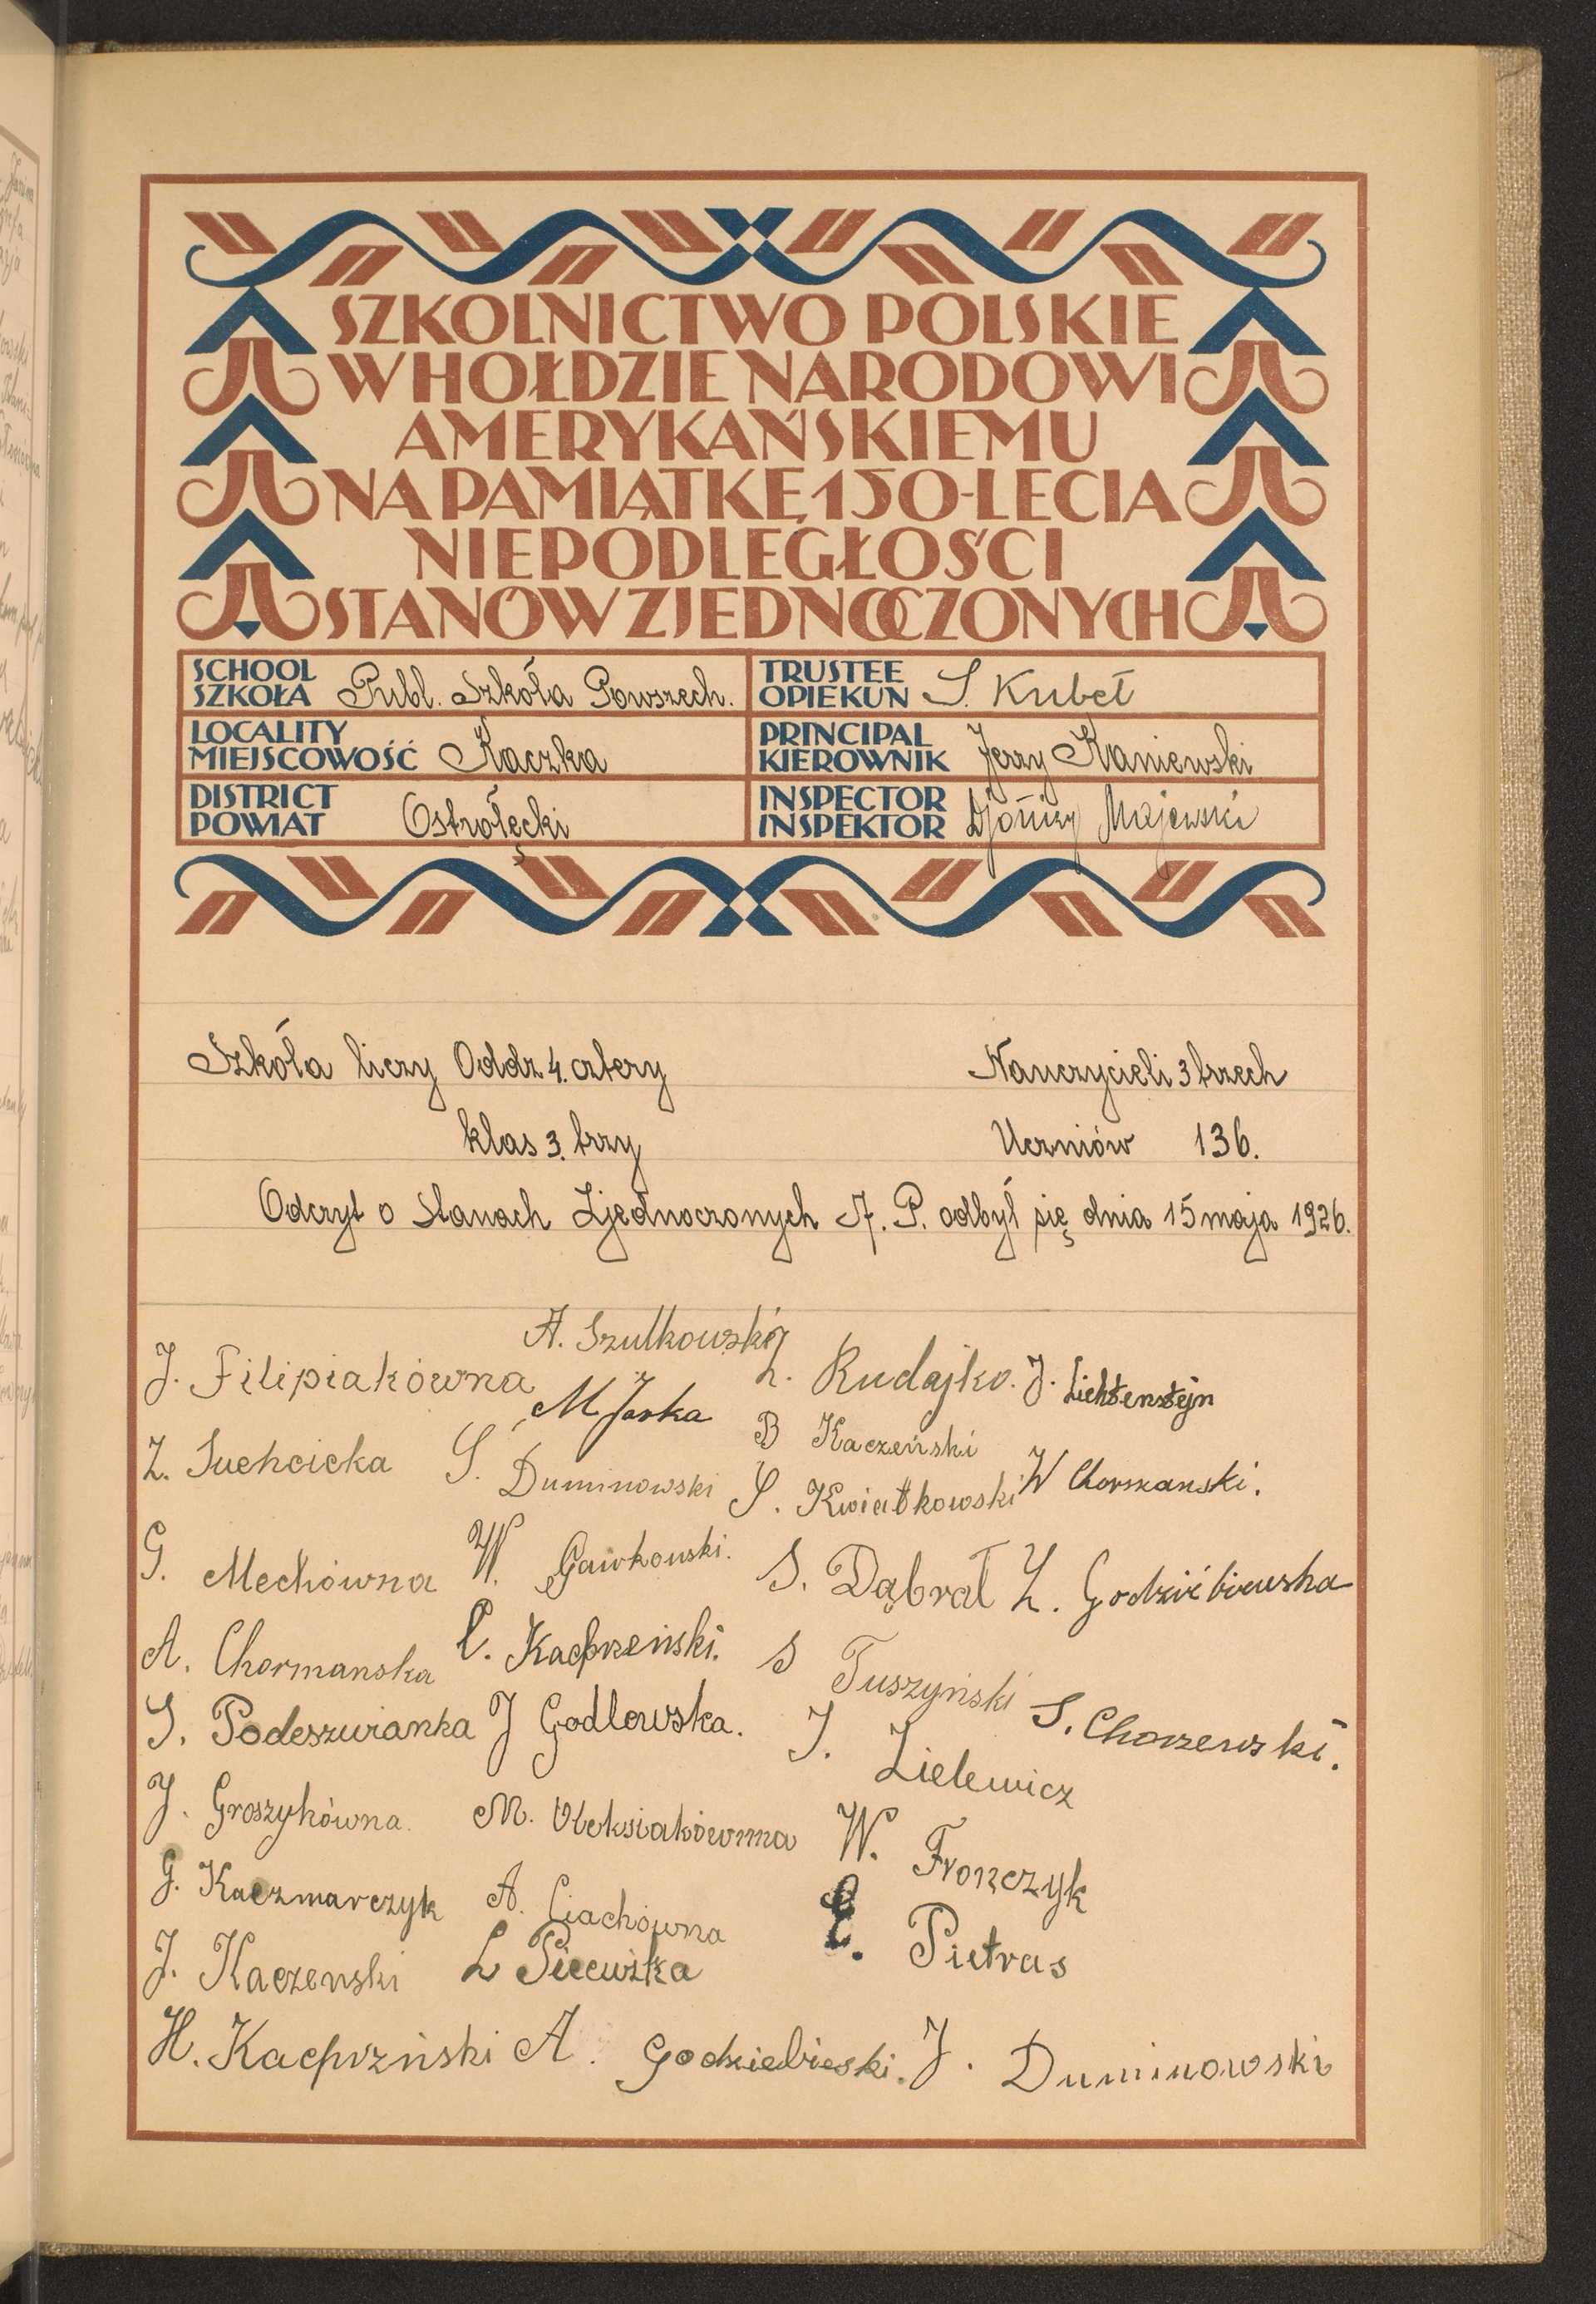 SZKOLNICTWO POLSKIE
W HOŁDZIE NARODOWI
AMERYKAŃSKIEMU
NA PAMIĄTKĘ 150-LECIA
NIEPODLEGŁOŚCI
STANÓW ZJEDNOCZONYCH
SCHOOL
SZKOŁA Publ. Szkóła Powszech.
TRUSTEE
OPIEKUN S. Kubeł
LOCALITY
MIEJSCOWOŚĆ Kaczka
PRINCIPAL
KIEROWNIK Jerzy Kaniewski
DISTRICT
POWIAT Ostrołęcki
INSPECTOR
INSPEKTOR Majewski
Szkóła liczy Oddz 4. cztery Nauczycieli 3 trzech
klas 3. trzy Uczniów 136.
Odczyt o Stanach Zjednoczonych A. P. odbył się dnia 15 maja 1926.
A. Szulkowski
J. Filipiakówna Z. Rudajko. J. Lichtenstejn
M Jarka
B Kaczeński
Z. Suchcicka S. Duminowski S. Kwiatkowski W Chormanski.
G. Mechówna W. Gawkowski. S. Dąbrał Z. Godziebiewska
A. Chormanska C. Kacprzeński. S Tuszyński
S. Podeszwianka J Godlewska. J. Zielewicz S. Chorzewski.
J. Groszykówna. M. Oleksiakównna W. Fronczyk
G. Kaczmarczyk A. Ciachówna
J. Kaczenski L E. Pietras
H. Kacprzński A. Godziebieski. J. Duminowski